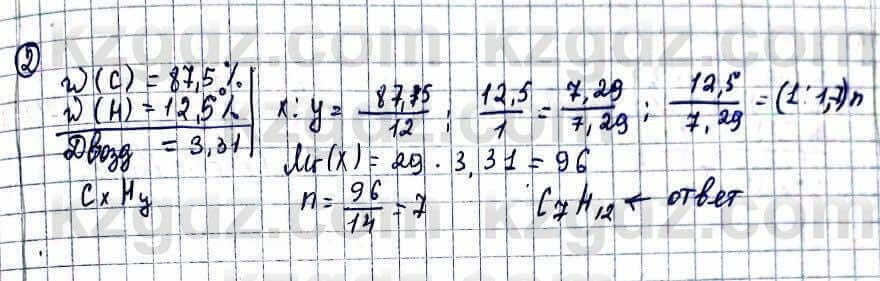 ②
w(C) = 87,5%
w(H) = 12,5%
Dвозд = 3,31
CxHy
x : y = 87,75/12 ; 12,5/1 = 7,29/7,29 ; 12,5/7,29 = (1 : 1,7)n
Mr(X) = 29 · 3,31 = 96
n = 96/14 = 7
C7H12 ← ответ
kzgdz.com